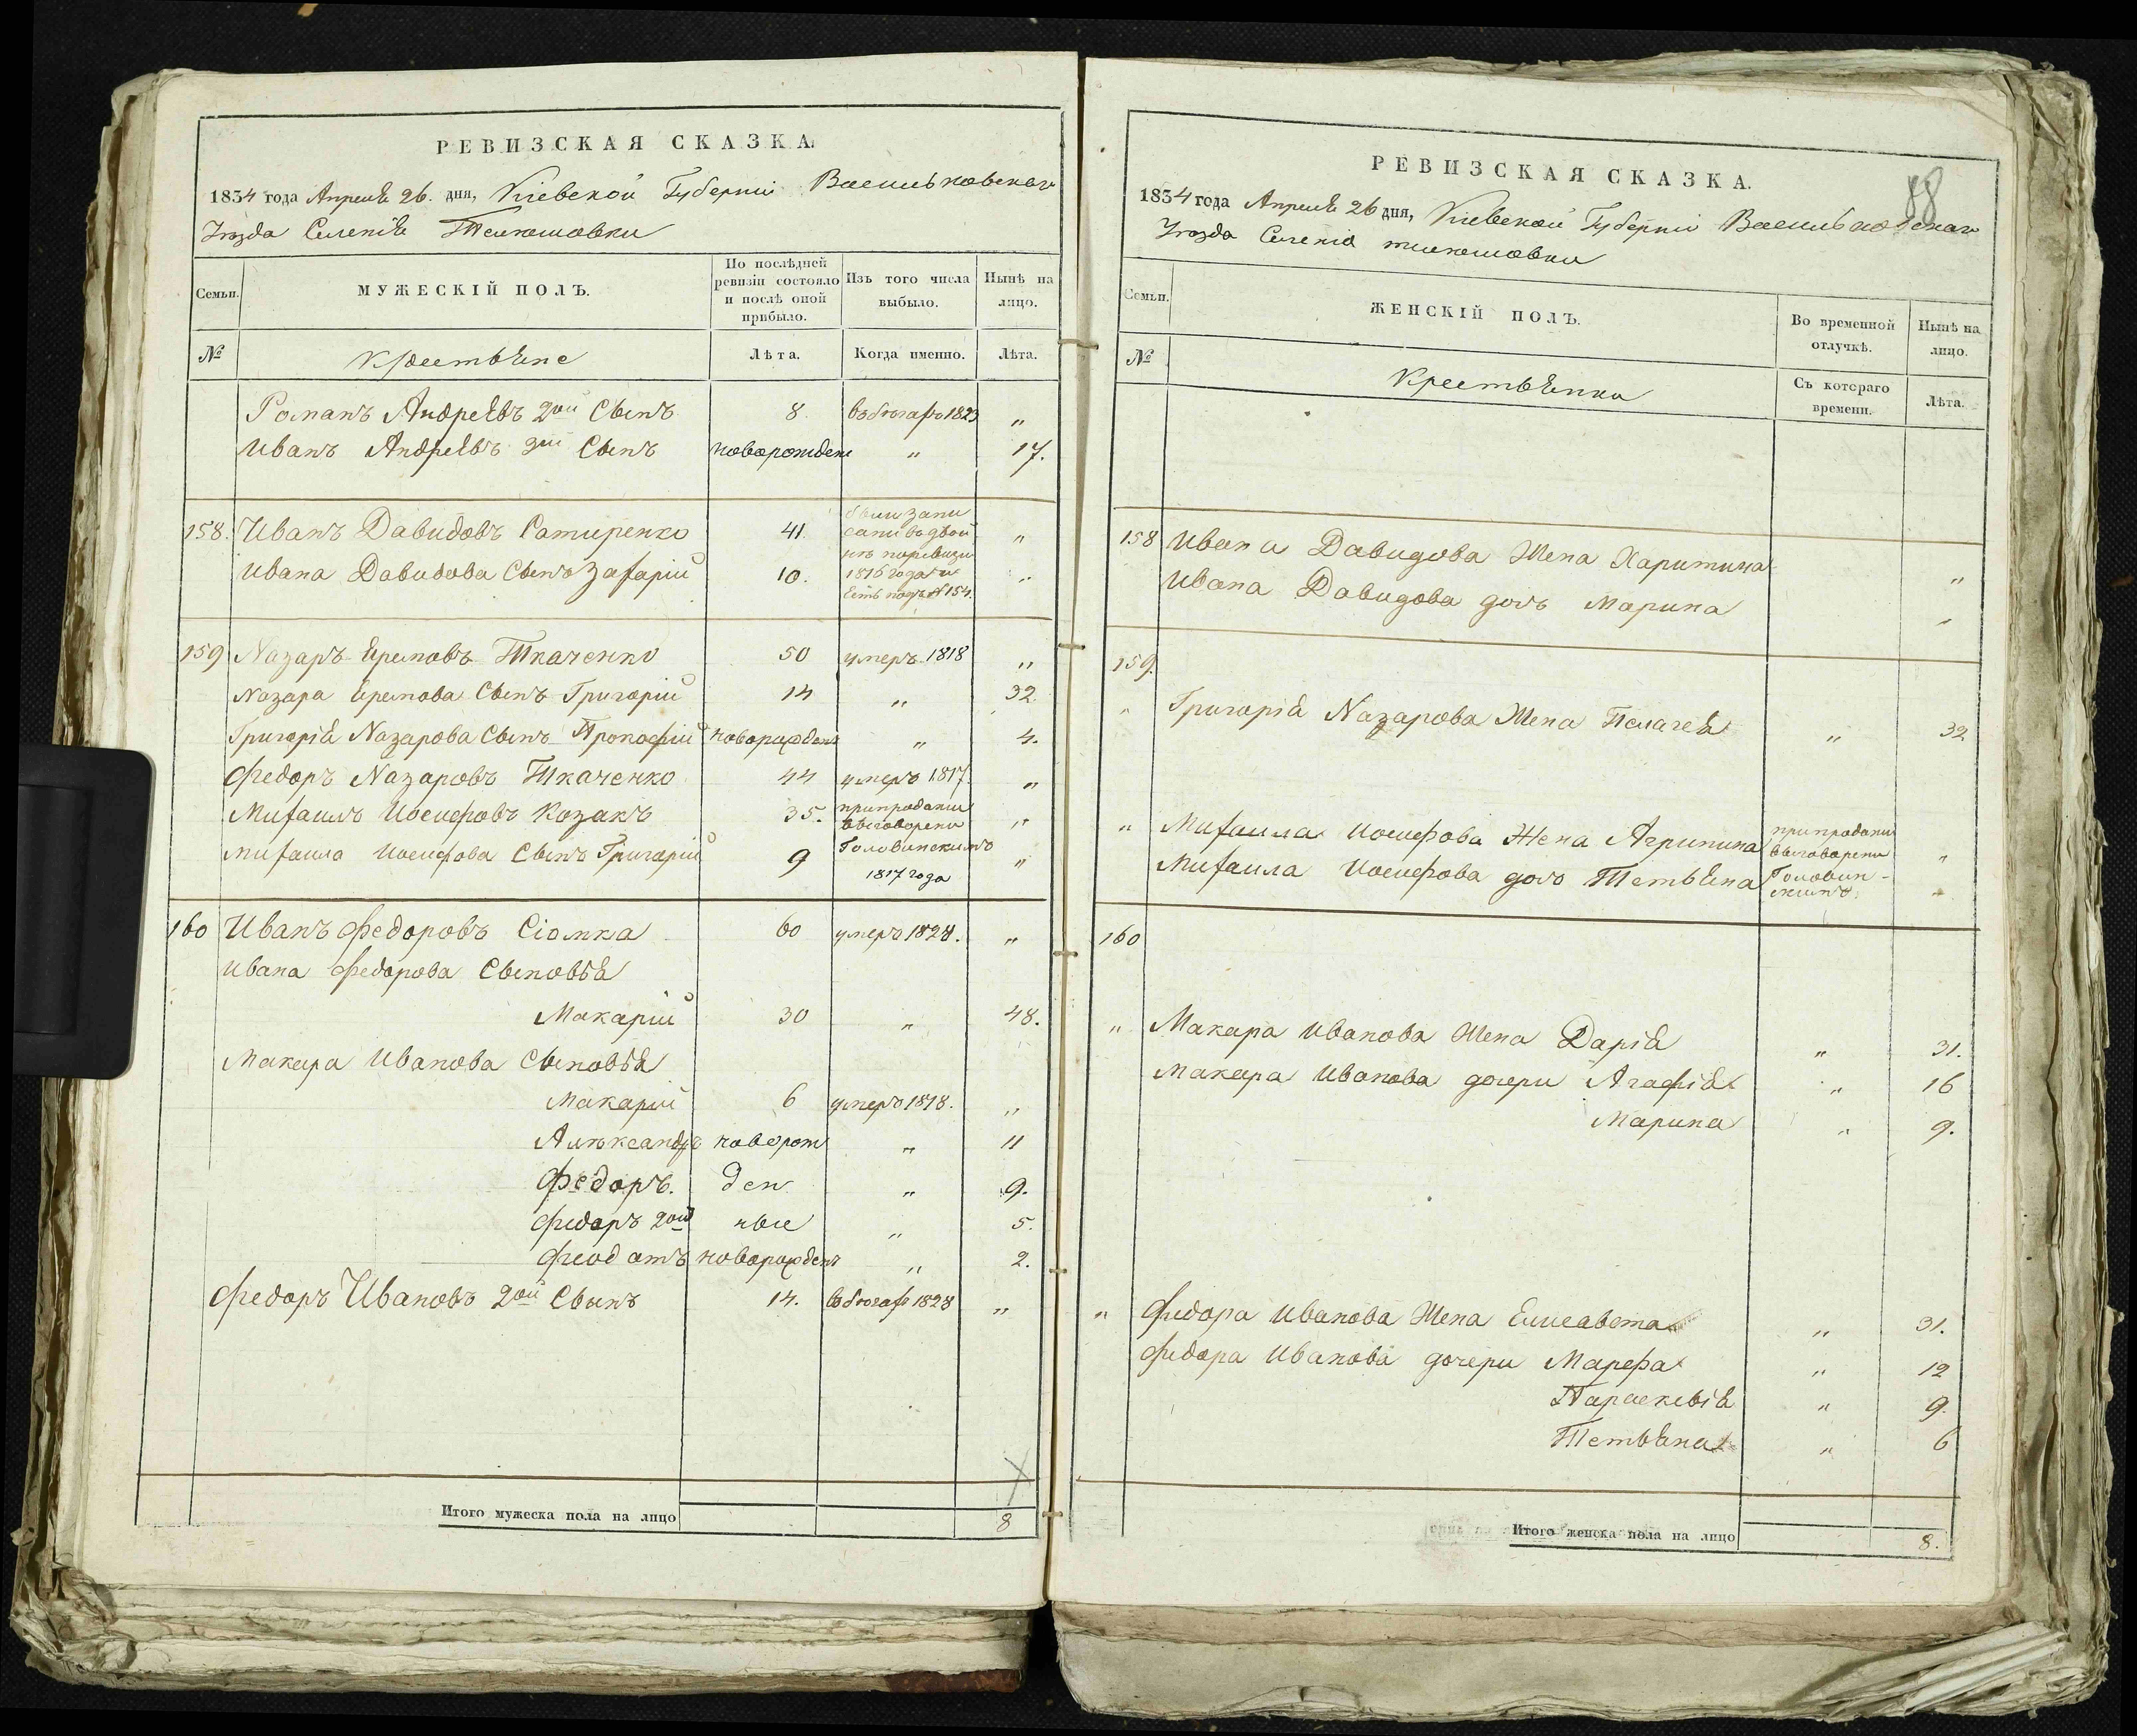 РЕВИЗСКАЯ СКАЗКА.
1834 года Апреля 26. дня, Кіевской Губерніи Васильковскаго
Уѣзда Селенія Телюшовки
Семьи. МУЖЕСКІЙ ПОЛЪ. По послѣдней ревизіи состояло и послѣ оной прибыло. Изъ того числа выбыло. Нынѣ на лицо.
№ Крестьяне Лѣта. Когда именно. Лѣта.
Романъ Андреѣвъ 2ой Сынъ 8. въ бѣгахъ 1823 „
Иванъ Андреѣвъ 3ій Сынъ новорожденъ „ 17.
158. Иванъ Давидовъ Ратиренко 41. были запи
сани въ двой
нѣ поревизіи „
Ивана Давидова Сынъ Захарій 10. 1816 года и „
Есть подъ № 154.
159 Назаръ Еремовъ Ткаченко 50 умеръ 1818 „
Назара Еремова Сынъ Григорій 14 „ 32
Григорія Назарова Сынъ Прокофій новорожденъ „ 4.
Федоръ Назаровъ Ткаченко 44 умеръ 1817. „
Михаилъ Иосифовъ Козакъ 35. при продажи
выговорени „
Михаила Иосифова Сынъ Григорій 9 Головинскимъ „
1817 года
160 Иванъ Федоровъ Сіомка 60 умеръ 1828. „
Ивана Федорова Сыновья
Макарій 30 „ 48.
Макара Иванова Сыновья
Макарій 6 умеръ 1818. „
Алѣксандръ новорож „ 11
Федоръ. ден „ 9.
Федоръ 2ой ные „ 5.
Феодотъ новорожденъ „ 2.
Федоръ Ивановъ 2ой Сынъ 14. въ бѣгахъ 1828 „
Итого мужеска пола на лицо 8
88
РЕВИЗСКАЯ СКАЗКА.
1834 года Апреля 26 дня, Кіевской Губерніи Васильковскаго
Уѣзда Селенія Телюшовки
Семьи. ЖЕНСКІЙ ПОЛЪ. Во временной отлучкѣ. Нынѣ на лицо.
№ Крестьянки Съ котораго времени. Лѣта.
158 Ивана Давидова Жена Харитина „
Ивана Давидова дочь Марина „
159.
„ Григорія Назарова Жена Пелагея „ 32
„ Михаила Иосифова Жена Агрипина при продажи
выговорени „
Михаила Иосифова дочь Тетьяна Головин-
скимъ. „
160
„ Макара Иванова Жена Дарія „ 31.
Макара Иванова дочери Агафія „ 16
Марина „ 9.
„ Федора Иванова Жена Елисавета „ 31.
Федора Иванова дочери Марефа „ 12
Параскевія „ 9.
Тетьяна „ 6
Итого женска пола на лицо 8.